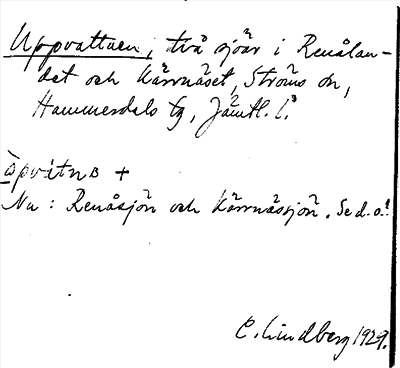 Uppvattnen, två sjöar i Renålan-
det och Kärrnäset, Ströms sn,
Hammerdals tg, Jämtl. l.
òpvìtnɞ +
Nu: Renåsjön och Kärrnässjön. Se d.o.!
C. Lindberg 1929.